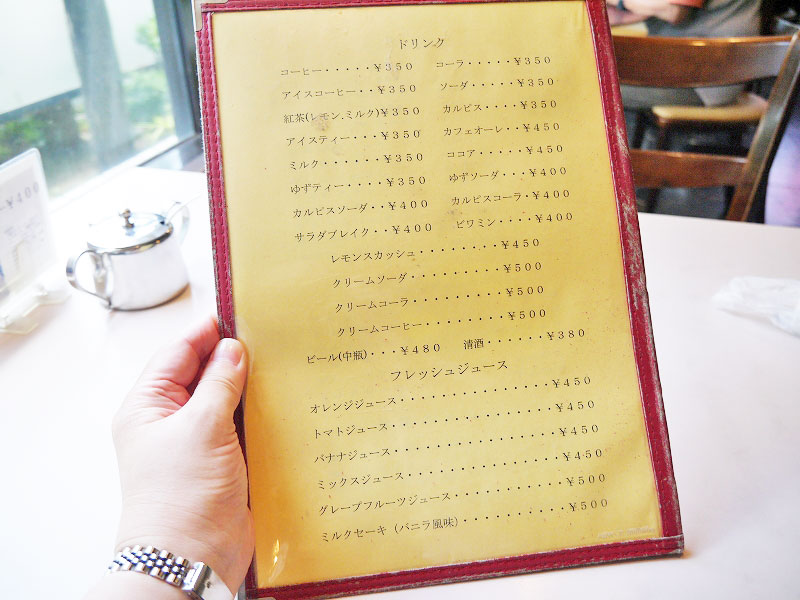 ドリンク
コーヒー・・・・・¥350 コーラ・・・・・¥350
アイスコーヒー・・・¥350 ソーダ・・・・・¥350
紅茶(レモン.ミルク)¥350 カルピス・・・・¥350
アイスティー・・・¥350 カフェオーレ・・¥450
ミルク・・・・・・¥350 ココア・・・・・¥450
ゆずティー・・・・¥350 ゆずソーダ・・・¥400
カルピスソーダ・・¥400 カルピスコーラ・¥400
サラダブレイク・・¥400 ビワミン・・・・¥400
レモンスカッシュ・・・・・・・・¥450
クリームソーダ・・・・・・・・・¥500
クリームコーラ・・・・・・・・・¥500
クリームコーヒー・・・・・・・・¥500
ビール(中瓶)・・・¥480 清酒・・・・・・¥380
フレッシュジュース
オレンジジュース・・・・・・・・・・・・・・・¥450
トマトジュース・・・・・・・・・・・・・・・・¥450
バナナジュース・・・・・・・・・・・・・・・・¥450
ミックスジュース・・・・・・・・・・・・・・・¥450
グレープフルーツジュース・・・・・・・・・・・¥500
ミルクセーキ（バニラ風味）・・・・・・・・・・¥500
¥400